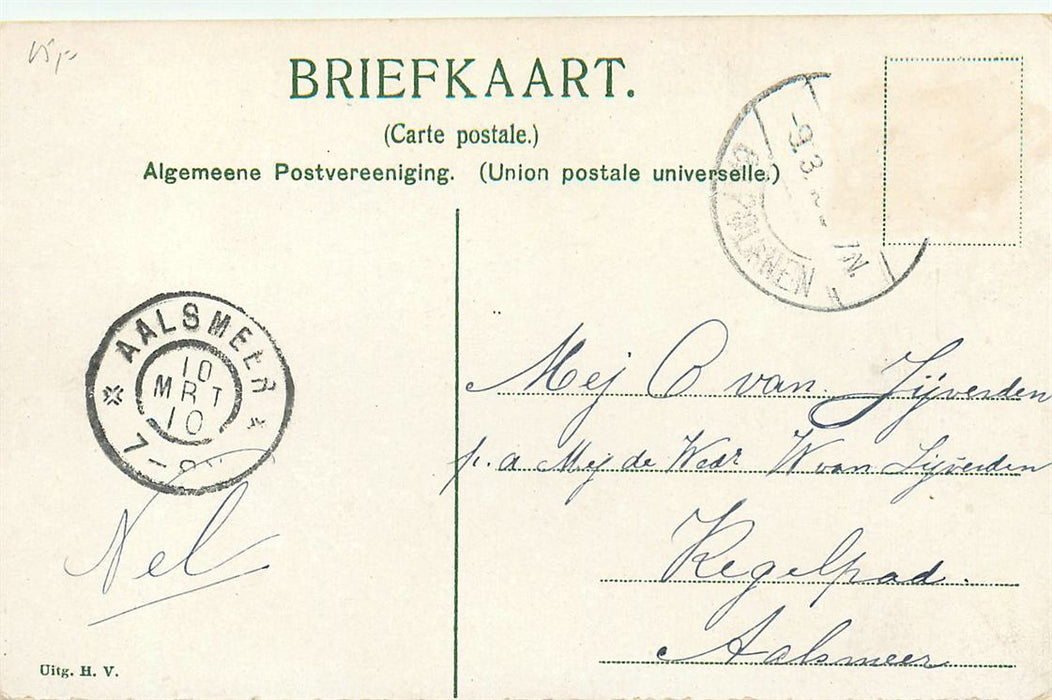 BRIEFKAART.
(Carte postale.)
Algemeene Postvereeniging. (Union postale universelle.)
-9.3.
N.
AALSMEER
10
MRT
10
7-8
Mej C van Lijverden
p.a Mej de Wedr W van Lijverden
Kegelpad.
Aalsmeer
Nel
Uitg. H. V.